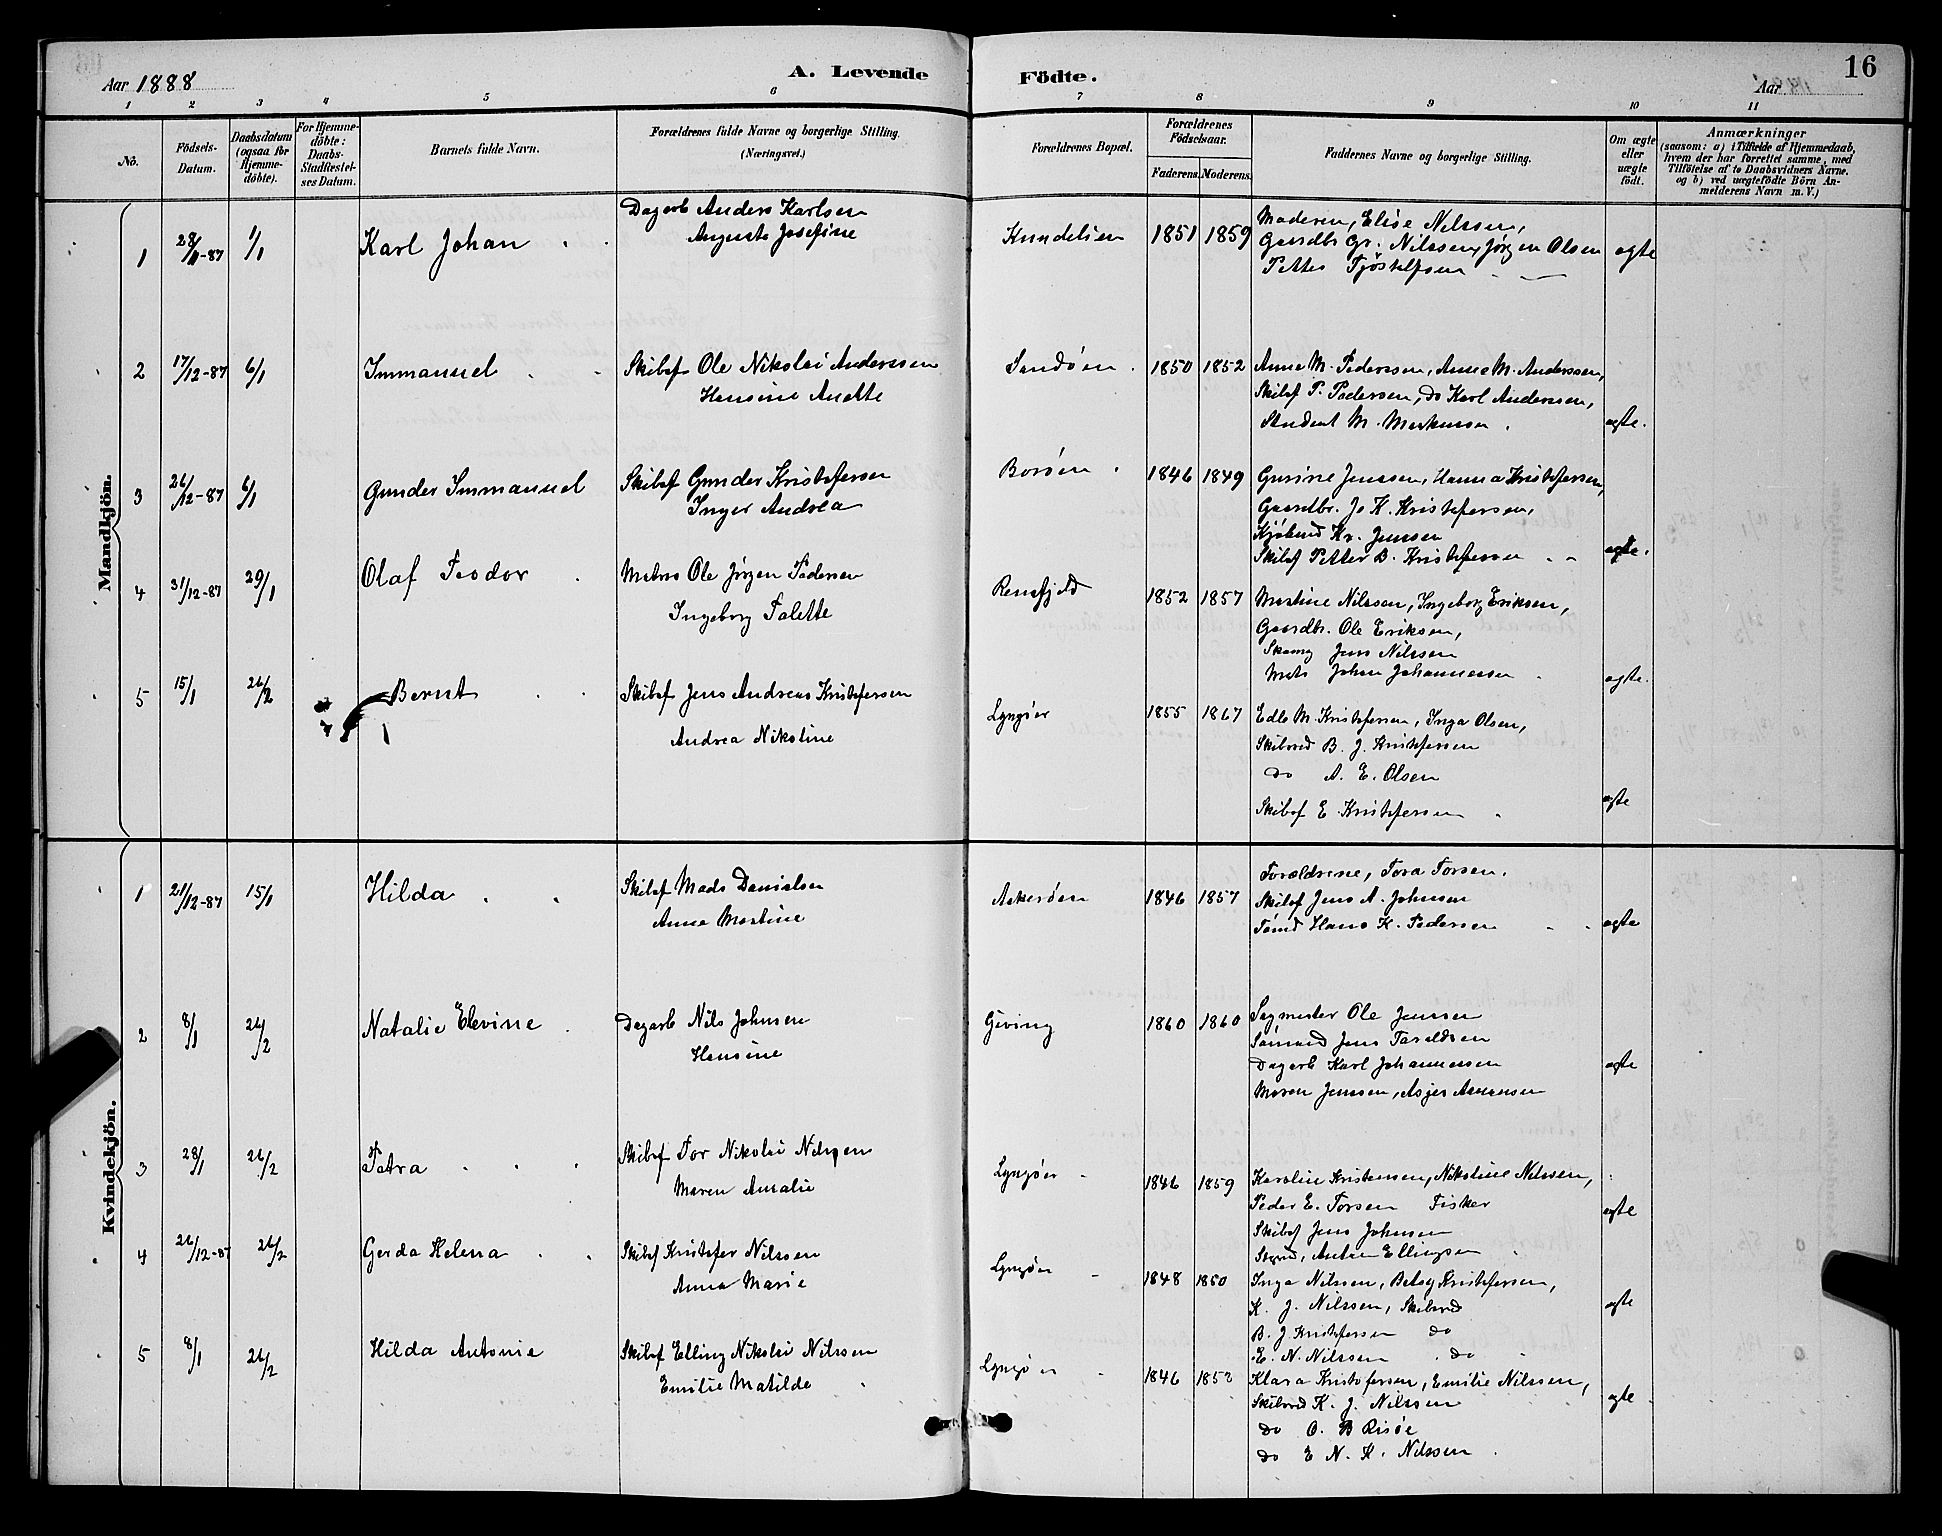 Aar 1888
A. Levende
Födte.
16
Aar
1 2 3 4 5 6 7 8 9 10 11
No.
Födsels-Datum.
Daabsdatum (ogsaa for Hjemme-döbte).
For Hjemme-döbte: Daabs-Stadfæstel-ses Datum.
Barnets fulde Navn.
Forældrenes fulde Navne og borgerlige Stilling. (Næringsvei.)
Forældrenes Bopæl.
Forældrenes Födselsaar.
Faderens. Moderens.
Faddernes Navne og borgerlige Stilling.
Om ægte eller uægte födt.
Anmærkninger
(saasom: a) i Tilfælde af Hjemmedaab, hvem der har forrettet samme, med Tilföielse af to Daabsvidners Navne, og b) ved uægtefödte Börn An-melderens Navn m. V.)
Mandkjön.
1 28/11-87 1/1 Karl Johan
Dagarb Anders Karlsen
Augusta Josefine
Knudelien 1851 1859
Moderen, Elise Nilssen,
Gaardbr Gr. Nilssen, Jørgen Olsen
Petter Tjøstelfsen
ægte
2 17/12-87 6/1 Immanuel
Skibsf Ole Nikolai Anderssen
Hansine Anette
Sandøen 1850 1852
Anne M. Pederssen, Anne M. Anderssen,
Skibsf P. Pedersen, do Karl Anderssen,
Student M. Markussen
ægte.
3 26/12-87 6/1 Gunder Immanuel
Skibsf Gunder Kristofersen
Inger Andrea
Borøen 1846 1849
Gurine Jenssen, Hanna Kristofersen,
Gaardbr. Jo K. Kristofersen,
Kjøbmd Kr. Jenssen
Skibsf Petter B. Kristofersen
ægte.
4 31/12-87 29/1 Olaf Teodor
Matros Ole Jørgen Pedersen
Ingeborg Talette
Rensfjeld 1852 1857
Martine Nilssen, Ingeborg Eriksen,
Gaardbr. Ole Eriksen,
Jens Nilssen
Mats Johan Johannessen
ægte.
5 15/1 26/2 Bernt
Skibsf Jens Andreas Kristofersen
Andrea Nikoline
Lyngøer 1855 1867
Edle M. Kristofersen, Inga Olsen,
Skibsred B. J. Kristofersen
do A. E. Olsen
Skibsf E Kristofersen
ægte
Kvindekjön.
1 21/12-87 15/1 Hilda
Skibsf Mads Danielsen
Anna Martine
Askerøen 1846 1857
Forældrene, Tora Torsen.
Skibsf Jens A. Johnsen
Tømd Hans K. Pedersen
ægte
2 8/1 26/2 Natalie Elevine
Dagarb Nils Johnsen
Hansine
Gjeving 1860 1860
Sagmester Ole Jenssen
Sømand Jens Taraldsen
Dagarb Karl Johannessen
Maren Jenssen, Asjer
ægte
3 28/1 26/2 Petra
Skibsf Tor Nikolai Nilssen
Maren Amalie
Lyngøer 1846 1859
Karoline Kristensen, Nikoline Nilssen,
Peder E. Torsen Fisker
Skibsf Jens Johnsen
Anton Ellingsen
ægte
4 26/12-87 26/2 Gerda Helena
Skibsf Kristofer Nilssen
Anna Marie
Lyngøer 1848 1860
Inga Nilssen, Betsy Kristofersen,
K. J. Nilssen, Skibsred
B. J Kristofersen do
E. N. Nilssen do
ægte
5 8/1 26/2 Hilda Antonie
Skibsf Elling Nikolai Nilssen
Emilie Matilde
Lyngøer 1846 1852
Klara Kristofersen, Emilie Nilssen,
Skibsred K. J. Nilssen
do O. B Risøe
do E N. K. Nilssen
ægte